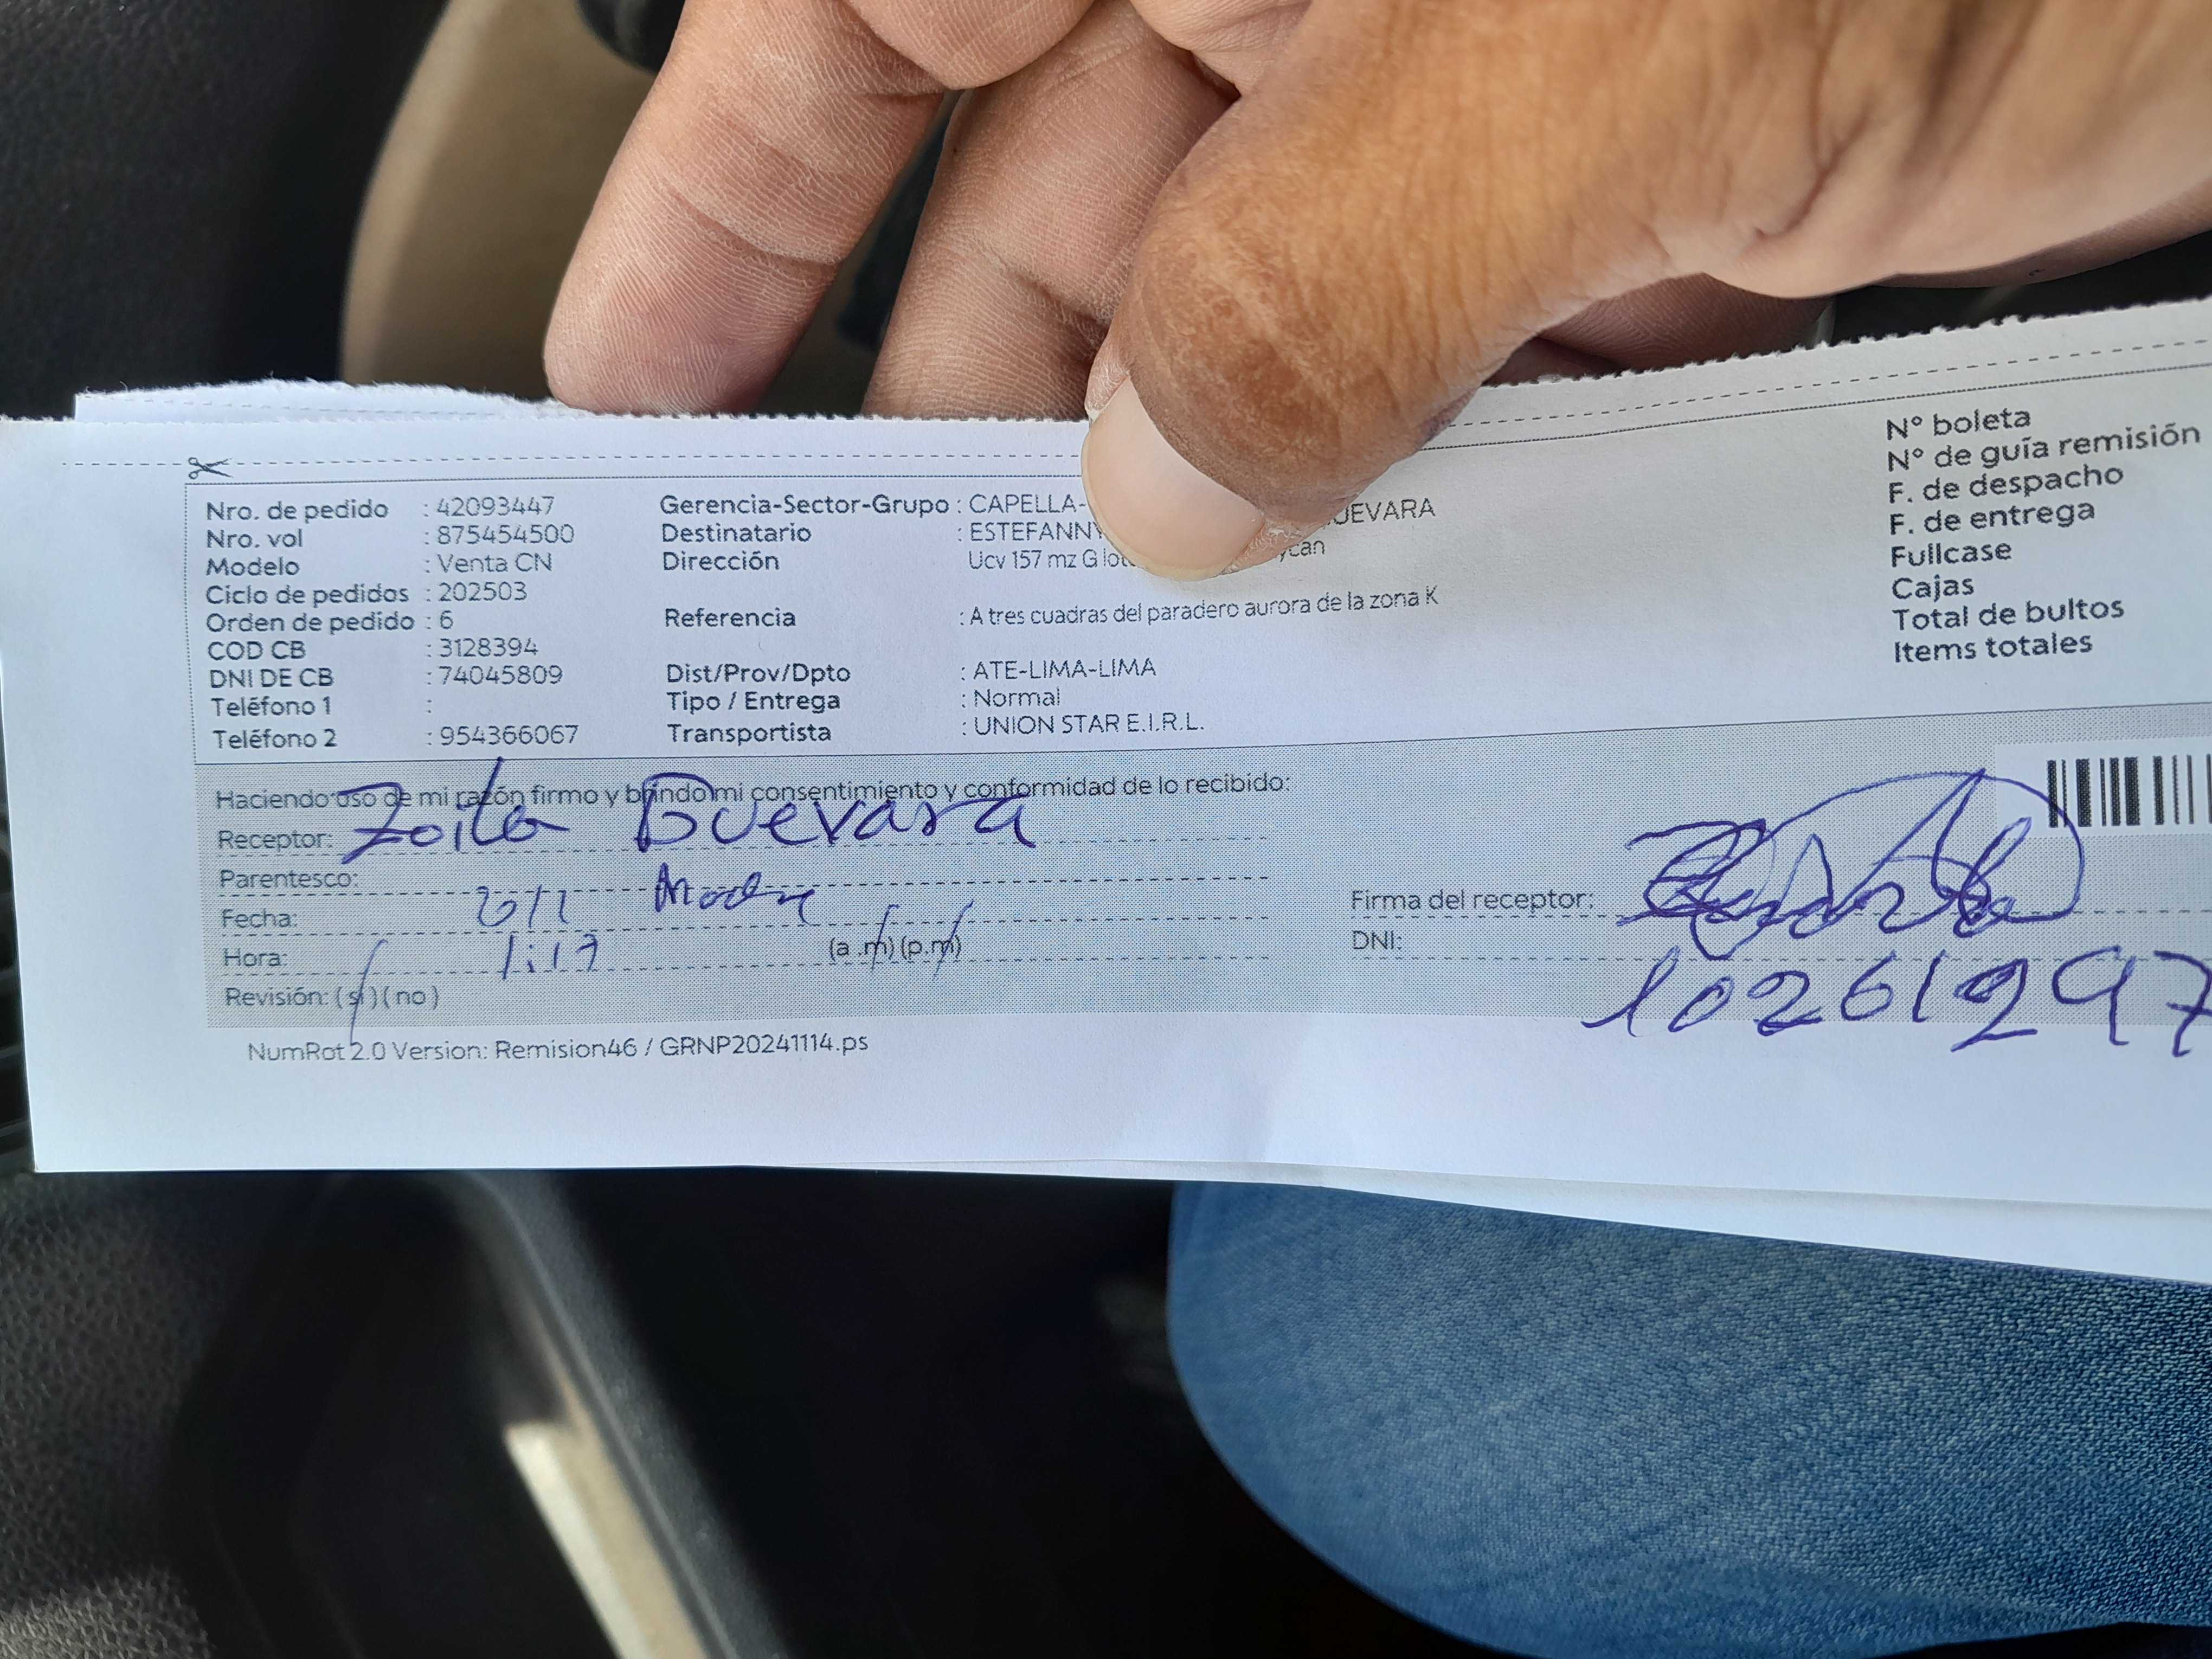 Nro. de pedido : 42093447
Nro. vol : 875454500
Modelo : Venta CN
Ciclo de pedidos : 202503
Orden de pedido : 6
COD CB : 3128394
DNI DE CB : 74045809
Teléfono 1 :
Teléfono 2 : 954366067
Gerencia-Sector-Grupo : CAPELLA-
Destinatario : ESTEFANNY UEVARA
Dirección Ucv 157 mz G
Referencia : A tres cuadras del paradero aurora de la zona K
Dist/Prov/Dpto : ATE-LIMA-LIMA
Tipo / Entrega : Normal
Transportista : UNION STAR E.I.R.L.
N° boleta
N° de guía remisión
F. de despacho
F. de entrega
Fullcase
Cajas
Total de bultos
Items totales
Haciendo uso de mi razón firmo y brindo mi consentimiento y conformidad de lo recibido:
Receptor: Zoila Guevara
Parentesco: Madre
Fecha:
Hora: 1:17 (a .m) (p.m)
Revisión: ( si ) ( no )
Firma del receptor:
DNI: 10261297
NumRot 2.0 Version: Remision46 / GRNP20241114.ps